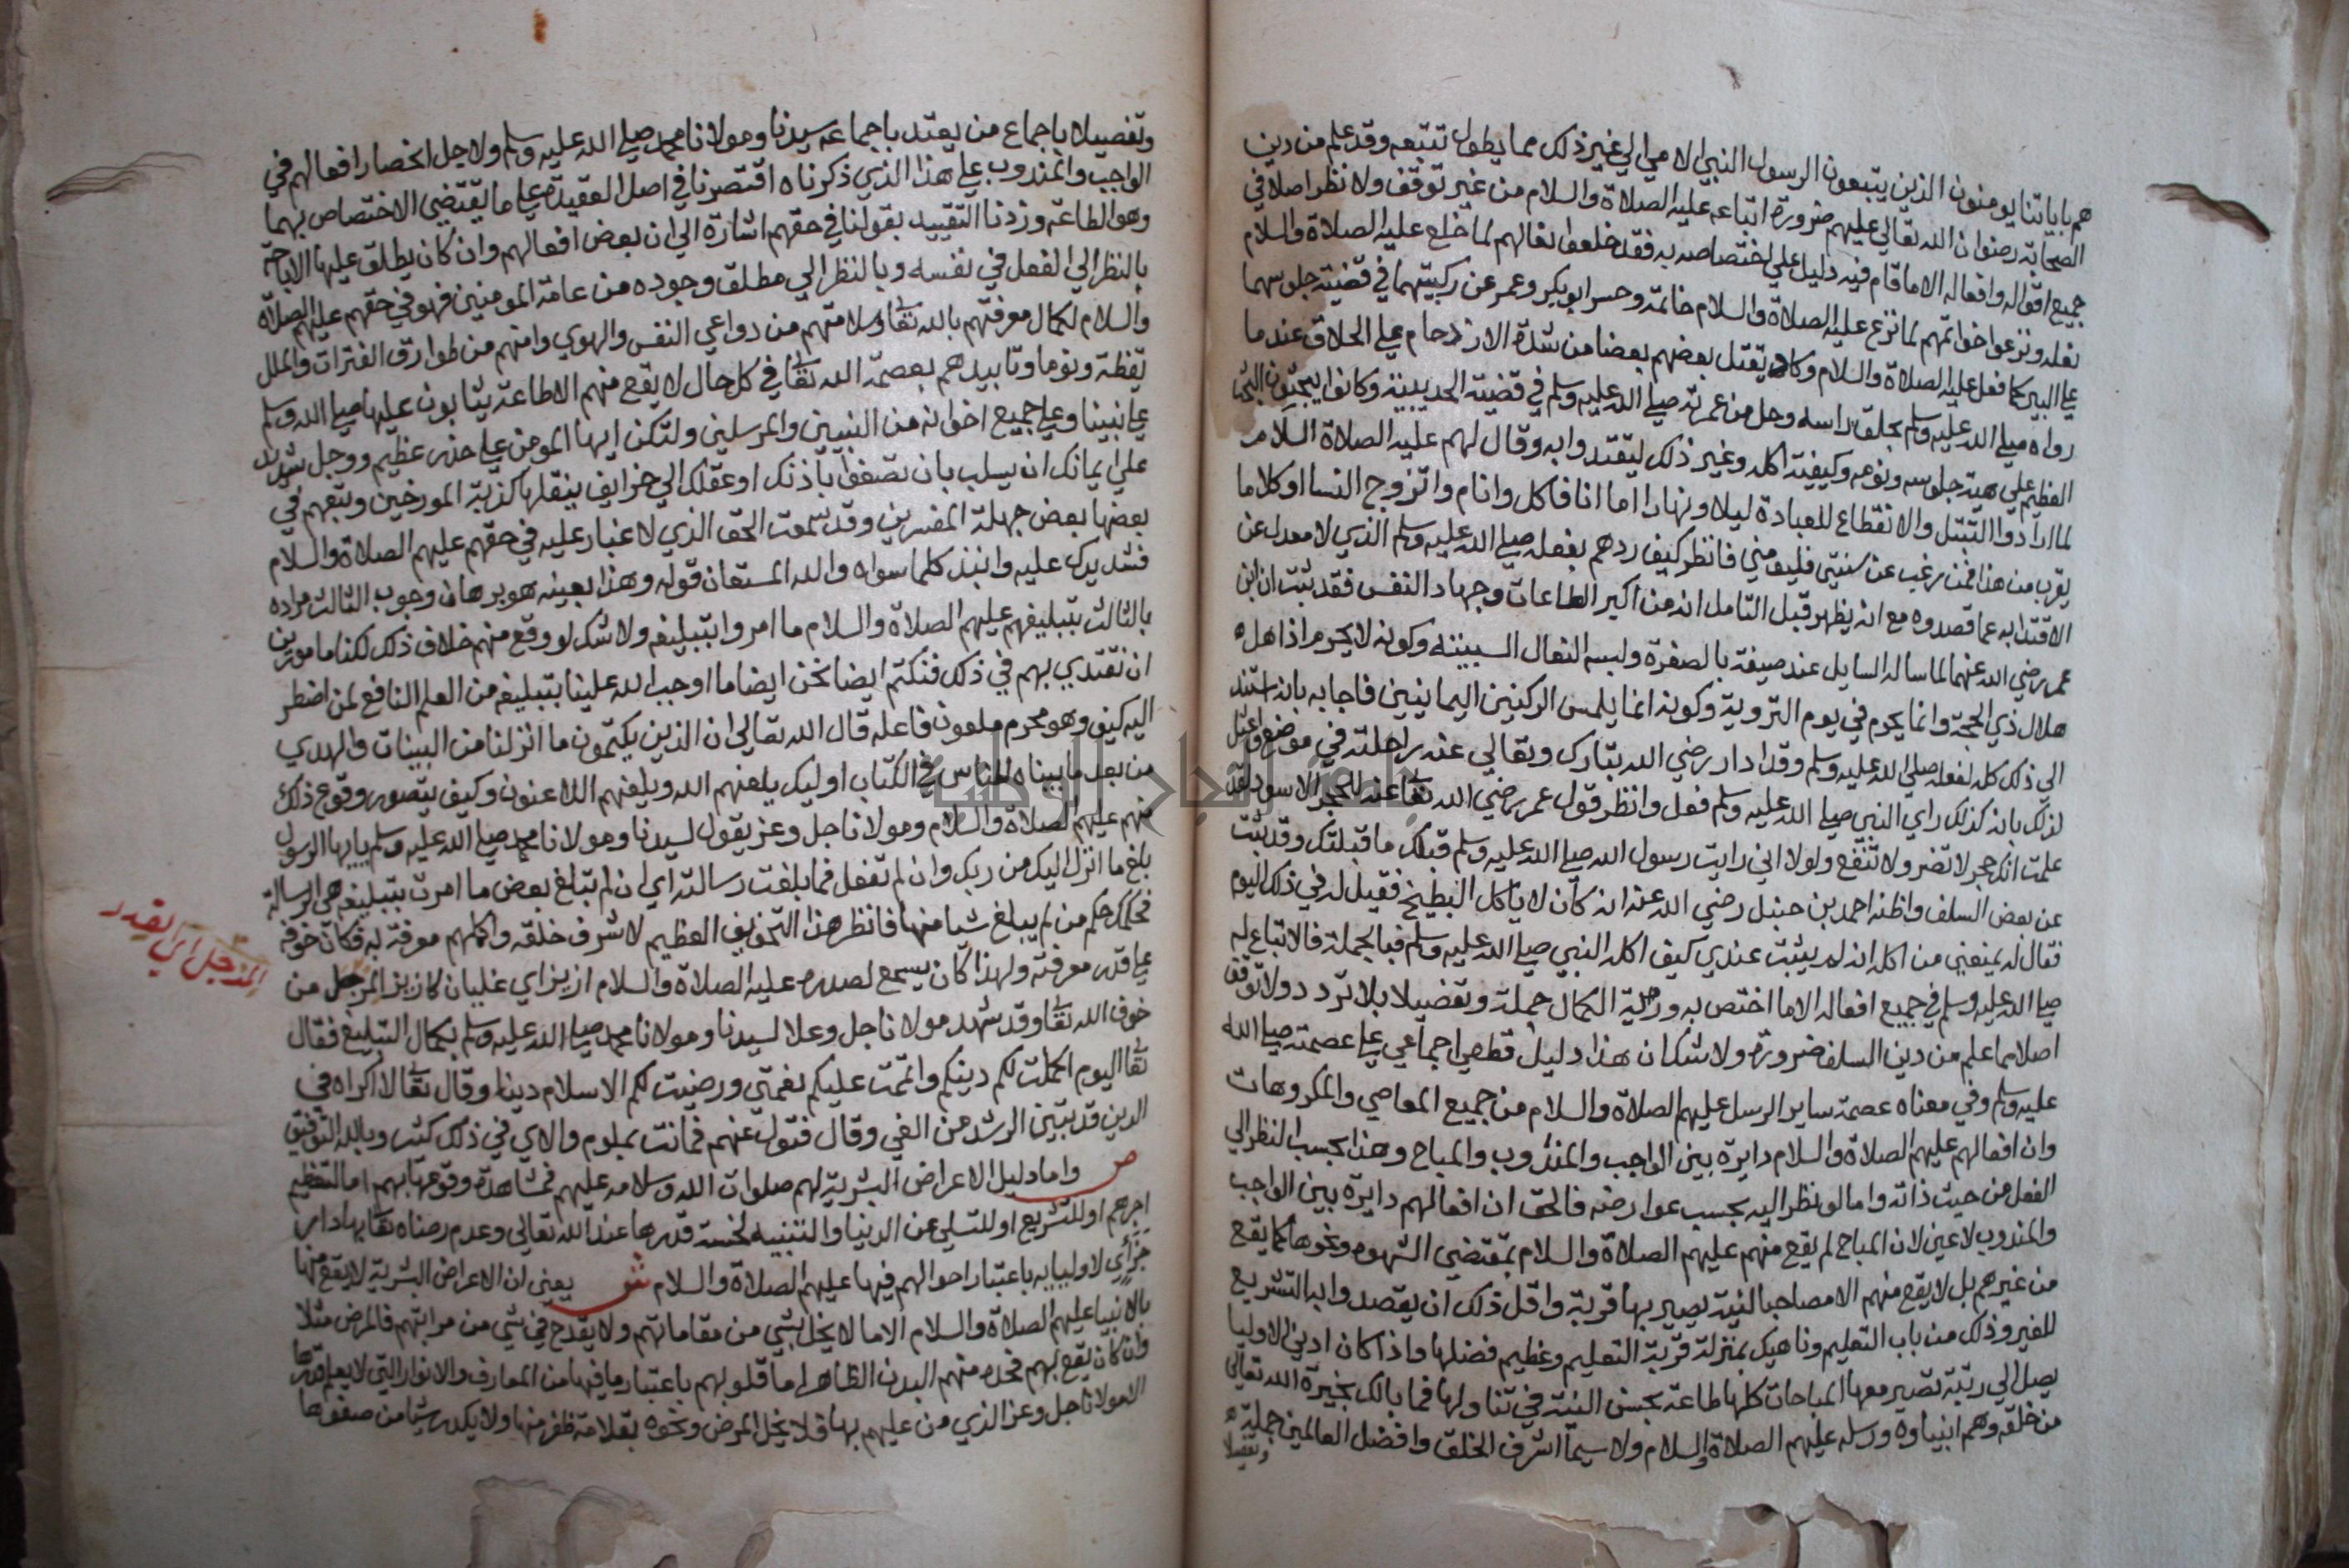 هم باياتنا يومنون الذين يتبعون الرسول النبي الامي الي غير ذلك مما يطول تتبعه وقد علم من دين
الصحابة رضوان الله تعالي عليهم ضرورة اتباعه عليه الصلاة والسلام من غير توقف ولا نظر اصلا في
جميع اقواله وافعاله الا ما قام فيه دليل علي اختصاصه به فقد خلعوا نعالهم لما خلع عليه الصلاة والسلام
نعله ونزعوا خواتمهم لما نزع عليه الصلاة والسلام خاتمه وحسر ابو بكر وعمر عن ركبتيهما في قضية جلوسهما
علي البير كما فعل عليه الصلاة والسلام وكاد يقتل بعضهم بعضا من شدة الازدحام علي الحلاق عندما
راوه صلي الله عليه وسلم بحلق راسه وحل من عمرته صلي الله عليه وسلم في قضية الحديبية وكانوا يبحثون البحث
العظيم علي هيئة جلوسه ونومه وكيفية اكله وغير ذلك ليقتدوا به وقال لهم عليه الصلاة السلام
لما ارادوا التبتل والانقطاع للعبادة ليلا ونهارا اما انا فاكل وانام واتزوج النسا او كلاما
يقرب من هذا فمن رغب عن سنتي فليس مني فانظر كيف ردهم بفعله صلي الله عليه وسلم الذي لا معدل عن
الاقتدا به عما قصدوه مع انه يظهر قبل التامل انه من اكبر الطاعات وجهاد النفس فقد ثبت ان ابن
عمر رضي الله عنهما لما ساله السايل عند صبغة بالصفرة ولبسه النعال السبتيه وكونه لا يحرم اذا هل
هلال ذي الحجة وانما يحرم في يوم التروية وكونه انما يلمس الركنين اليمانيين فاجابه بانه استند
الي ذلك كله لفعله صلي الله عليه وسلم وقد ادار رضي الله تبارك وتعالي عنه راحلته في موضع واعتل
لذلك بانه كذلك راي النبي صلي الله عليه وسلم فعل وانظر قول عمر رضي الله تعا عنه للحجر الاسود لقد
علمت انك حجر لا تضر ولا تنفع ولولا اني رايت رسول الله صلي الله عليه وسلم قبلك ما قبلتك وقد ثبت
عن بعض السلف واظنه احمد بن حنبل رضي الله عنه انه كان لا ياكل البطيخ فقيل له في ذلك اليوم
فقال له يمنعني من اكله انه لم يثبت عندي كيف اكله النبي صلي الله عليه وسلم فبالجملة فالاتباع له
صلي الله عليه وسلم في جميع افعاله الا ما اختص به ورؤية الكمال جملة وتفصيلا بلا تردد ولا توقف
اصلا مما علم من دين السلف ضرورة ولا شك ان هذا دليل قطعي اجماعي علي عصمته صلي الله
عليه وسلم وفي معناه عصمة ساير الرسل عليهم الصلاة والسلام من جميع المعاصي والمكروهات
وان افعالهم عليهم الصلاة والسلام دايرة بين الواجب والمندوب والمباح وهذا بحسب النظر الي
الفعل من حيث ذاته واما لو نظر اليه بحسب عوارضه فالحق ان افعالهم دايرة بين الواجب
والمندوب لا غير لان المباح لم يقع منهم عليهم الصلاة والسلام بمقتضي الشهوه ونحوها كما يقع
من غيرهم بل لا يقع منهم الا مصاحبا لنية يصير بها قربة واقل ذلك ان يقصدوا به التشريع
للغير وذلك من باب التعليم وناهيك بمنزلة قربة التعليم وعظيم فضلها واذا كان ادني الاوليا
يصل الي رتبة تصير معها المباحات كلها طاعة بحسن النية في تناولها فما بالك بخيرة الله تعالي
من خلقه وهم انبياوه ورسله عليهم الصلاة والسلام ولا سيما اشرف الخلق وافضل العالمين جملة
وتفصيلا
وتفصيلا باجماع من يعتد باجماعه سيدنا ومولانا محمد صلي الله عليه وسلم ولاجل انحصار افعالهم في
الواجب والمندوب علي هذا الذي ذكرناه اقتصرنا في اصل العقيدة علي ما يقتضي الاختصاص بهما
وهو الطاعة وزدنا التقييد بقولنا في حقهم اشارة الي ان بعض افعالهم وان كان يطلق عليها الاباحة
بالنظر الي الفعل في نفسه وبالنظر الي مطلق وجوده من عامة المومنين فهو في حقهم عليهم الصلاة
والسلام لكمال معرفتهم بالله تعا وسلامتهم من دواعي النفس والهوي وامنهم من طوارق الفترات والملل
يقظة ونوما وتاييدهم بعصمة الله تعا في كل حال لا يقع منهم الا طاعة يثابون عليها صلي الله وسلم
علي نبينا وعلي جميع اخوانه من النبيين والمرسلين ولتكن ايها المومن علي حذر عظيم ووجل شديد
علي ايمانك ان يسلب بان تصغي باذنك او عقلك الي خرايف ينقلها كذبة المورخين وتبعهم في
بعضها بعض جهلة المفسرين وقد سمعت الحق الذي لا غبار عليه في حقهم عليهم الصلاة والسلام
فشد يدك عليه وانبذ كلما سواه والله المستعان قوله وهذا بعينه هو برهان وجوب الثالث مراده
بالثالث بتبليغهم عليهم الصلاة والسلام ما امروا بتبليغه ولا شك لو وقع منهم خلاف ذلك لكنا مامورين
ان نقتدي بهم في ذلك فنكتم ايضا نحن ايضا ما اوجب الله علينا بتبليغه من العلم النافع لمن اضطر
اليه كيف وهو محرم ملعون فاعله قال الله تعالي ان الذين يكتمون ما انزلنا من البينات والهدي
من بعد ما بيناه للناس في الكتاب اوليك يلعنهم الله ويلعنهم اللاعنون وكيف يتصور وقوع ذلك
منهم عليهم الصلاة والسلام ومولانا جل وعز يقول لسيدنا ومولانا محمد صلي الله عليه وسلم يايها الرسول
بلغ ما انزل اليك من ربك وان لم تفعل فما بلغت رسالته اي ان لم تبلغ بعض ما امرت بتبليغه من الرسالة
فحكمك حكم من لم يبلغ شيا منها فانظر هذا التخويف العظيم لاشرف خلقه واكملهم معرفة به فكان خوفه
علي قدر معرفته ولهذا كان يسمع لصدره عليه الصلاة والسلام ازيز اي غليان كازيز المرجل من
المرجل اي القدر
خوف الله تعا وقد شهد مولانا جل وعلا لسيدنا ومولانا محمد صلي الله عليه وسلم بكمال التبليغ فقال
تعا اليوم اكملت لكم دينكم واتممت عليكم نعمتي ورضيت لكم الاسلام دينا وقال تعا لا اكراه في
الدين قد تبين الرشد من الغي وقال فتول عنهم فما انت بملوم والاي في ذلك كثير وبالله التوفيق
ص واما دليل الاعراض البشرية لهم صلوات الله وسلامه عليهم فمشاهدة وقوعها بهم اما لتعظيم
اجرهم او للتشريع او للتسلي عن الدنيا والتنبيه لخسة قدرها عند الله تعالي وعدم رضاه تعا بها دار
جزاي لاوليايه باعتبار احوالهم فيها عليهم الصلاة والسلام ش يعني ان الاعراض البشرية لا يقع منها
بالانبيا عليهم الصلاة والسلام الا ما لا يخل بشي من مقاماتهم ولا يقدح في شي من مراتبهم فالمرض مثلا
وان كان يقع لهم فحده منهم البدن الظاهر اما قلوبهم باعتبار ما فيها من المعارف والانوار التي لا يعلم قدرها
الا مولانا جل وعز الذي من عليهم بها فلا يخل المرض ونحوه بقلامة ظفر منها ولا يكدر شيا من صفوها
جامعة النجاح الوطنية